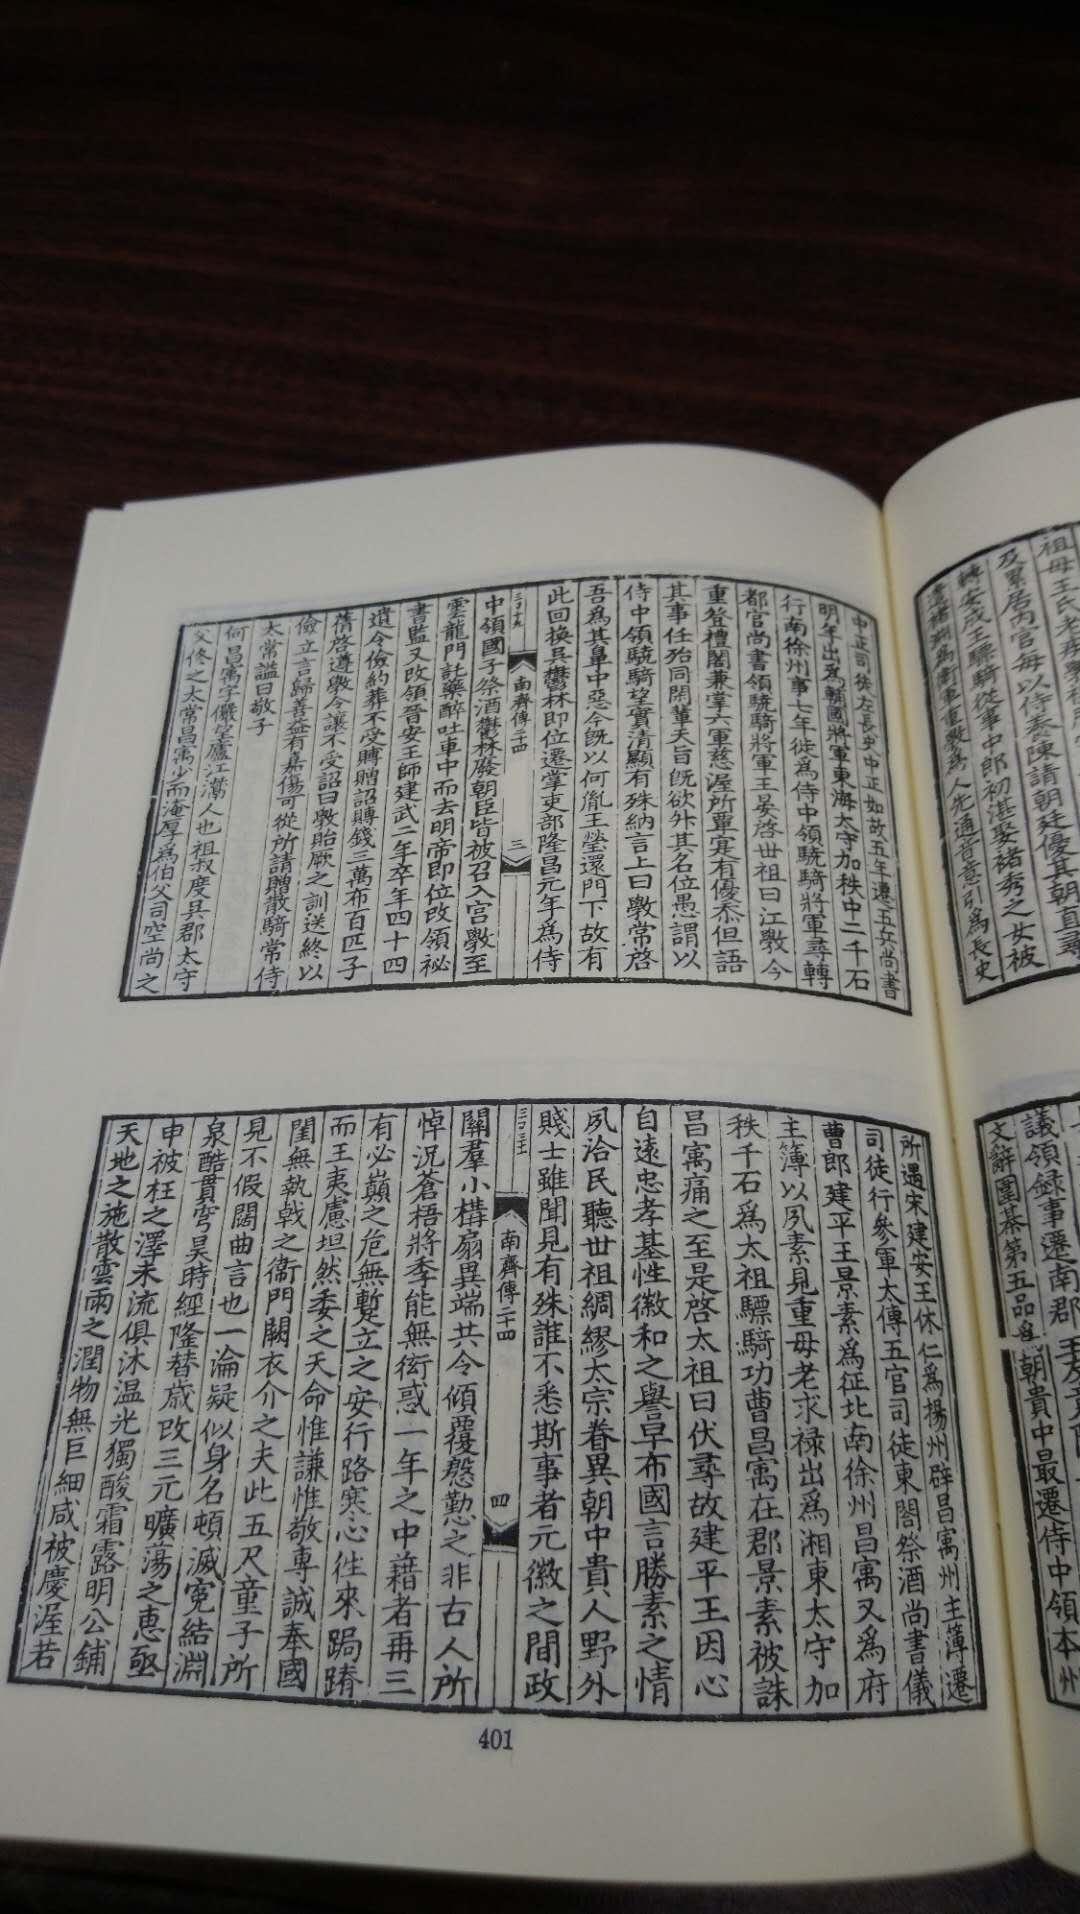 祖母王氏老疾
及累居内官每以侍養陳請朝廷優其朝直尋
轉安成王驃騎從事中郎初湛娶褚秀之女被
遣褚淵爲衞軍重斅爲人先通音意引爲長史
議領録事遷南郡王友
文辭圍棊第五品爲朝貴中最遷侍中領本州
中正司徒左長史中正如故五年遷五兵尚書
明年出爲輔國將軍東海太守加秩中二千石
行南徐州事七年徙爲侍中領驍騎將軍尋轉
都官尚書領驍騎將軍王晏啓世祖曰江斅今
重登禮閤兼掌六軍慈渥所覃寔有優忝但語
其事任殆同閑輩天旨旣欲升其名位愚謂以
侍中領驍騎望實清顯有殊納言上曰斅常啓
吾爲其鼻中惡今旣以何胤王瑩還門下故有
此回換吳鬱林即位遷掌吏部隆昌元年爲侍
南齊傳二十四
三
中領國子祭酒鬱林廢朝臣皆被召入宮斅至
雲龍門託藥醉吐車中而去明帝即位改領祕
書監又改領晉安王師建武二年卒年四十四
遺令儉約葬不受賻贈詔賻錢三萬布百匹子
蒨啓遵斅令讓不受詔曰斅貽厥之訓送終以
儉立言歸善益有嘉傷可從所請贈散騎常侍
太常謚曰敬子
何昌㝢字儼望廬江灊人也祖叔度吳郡太守
父佟之太常昌㝢少而淹厚爲伯父司空尚之
所遇宋建安王休仁爲揚州辟昌㝢州主薄遷
司徒行參軍太傅五官司徒東閤祭酒尚書儀
曹郎建平王景素爲征北南徐州昌㝢又爲府
主簿以夙素見重母老求禄出爲湘東太守加
秩千石爲太祖驃騎功曹昌㝢在郡景素被誅
昌㝢痛之至是啓太祖曰伏尋故建平王因心
自遠忠孝基性徽和之譽早布國言勝素之情
夙洽民聽世祖綢繆太宗眷異朝中貴人野外
賤士雖聞見有殊誰不悉斯事者元徽之間政
南齊傳二十四
四
關羣小構扇異端共令傾覆慇懃之非古人所
悼況蒼梧將季能無衒惑一年之中藉者再三
有必巔之危無蹔立之安行路寒心往來跼蹐
而王夷慮坦然委之天命惟謙惟敬專誠奉國
閨無執戟之衞門闕衣介之夫此五尺童子所
見不假闊曲言也一淪疑似身名頓滅寃結淵
泉酷貫穹昊時經隆替歲改三元曠蕩之惠亟
申被枉之澤未流俱沐温光獨酸霜露明公鋪
天地之施散雲雨之潤物無巨細咸被慶渥若
401